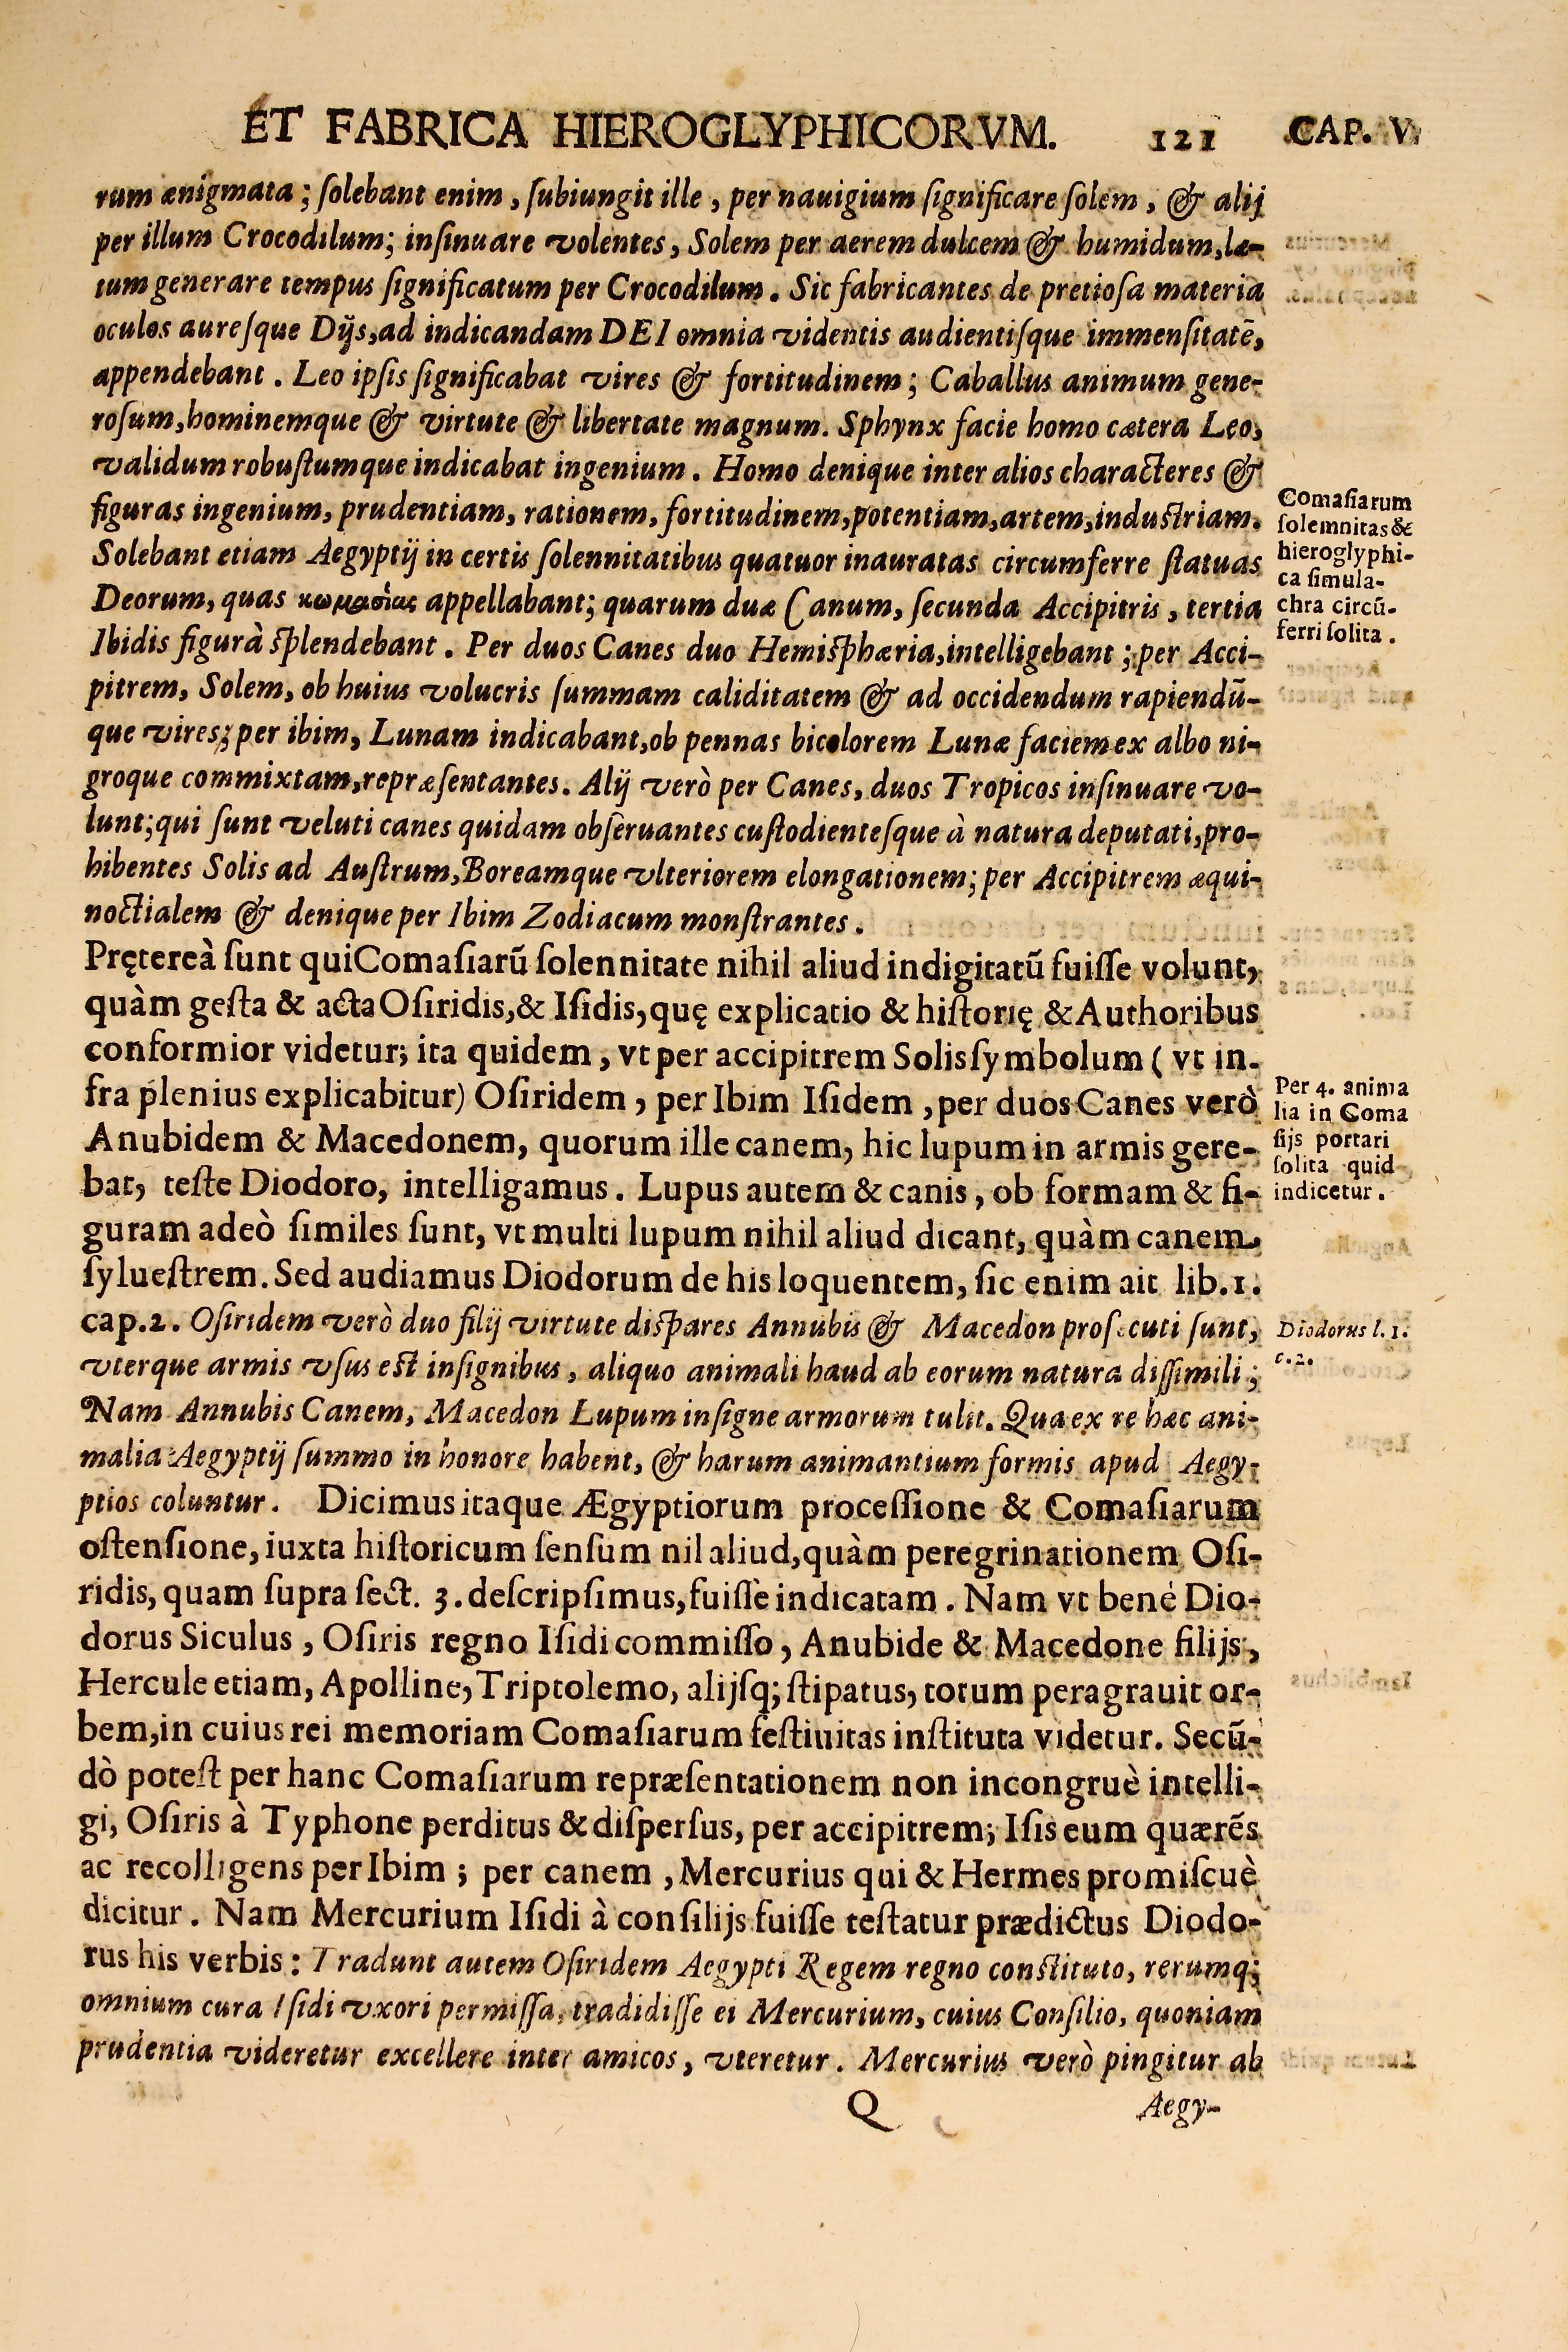 ET FABRICA HIEROGLYPHICORVM. 121 CAP. V.
rum ænigmata; ſolebant enim, ſubiungit ille, per nauigium ſignificare ſolem, & alij
per illum Crocodilum; inſinuare volentes, Solem per aerem dulcem & humidum, læ-
tum generare tempus ſignificatum per Crocodilum. Sic fabricantes de pretioſa materia
oculos aureſque Dijs, ad indicandam DEI omnia videntis audientiſque immenſitatē,
appendebant. Leo ipſis ſignificabat vires & fortitudinem; Caballus animum gene-
roſum, hominemque & virtute & libertate magnum. Sphynx facie homo cætera Leo,
validum robuſtumque indicabat ingenium. Homo denique inter alios characteres &
figuras ingenium, prudentiam, rationem, fortitudinem, potentiam, artem, induſtriam.
Solebant etiam Aegyptij in certis ſolennitatibus quatuor inauratas circumferre ſtatuas
Deorum, quas κωμασίας appellabant; quarum duæ Canum, ſecunda Accipitris, tertia
Ibidis figurà ſplendebant. Per duos Canes duo Hemiſphæria, intelligebant; per Acci-
pitrem, Solem, ob huius volucris ſummam caliditatem & ad occidendum rapiendū-
que vires; per ibim, Lunam indicabant, ob pennas bicolorem Lunæ faciem ex albo ni-
groque commixtam, repræſentantes. Alij verò per Canes, duos Tropicos inſinuare vo-
lunt; qui ſunt veluti canes quidam obſeruantes cuſtodienteſque à natura deputati, pro-
hibentes Solis ad Auſtrum, Boreamque vlteriorem elongationem; per Accipitrem æqui-
noctialem & denique per Ibim Zodiacum monſtrantes.
Comaſiarum
ſolemnitas &
hieroglyphi-
ca ſimula-
chra circū-
ferri ſolita.
Pręterea̓ ſunt qui Comaſiarū ſolennitate nihil aliud indigitatū fuiſſe volunt,
quàm geſta & acta Oſiridis, & Iſidis, quę explicatio & hiſtorię & Authoribus
conformior videtur; ita quidem, vt per accipitrem Solis ſymbolum ( vt in-
fra plenius explicabitur) Oſiridem, per Ibim Iſidem, per duos Canes verò
Anubidem & Macedonem, quorum ille canem, hic lupum in armis gere-
bat, teſte Diodoro, intelligamus. Lupus autem & canis, ob formam & fi-
guram adeò ſimiles ſunt, vt multi lupum nihil aliud dicant, quàm canem
ſylueſtrem. Sed audiamus Diodorum de his loquentem, ſic enim ait lib. 1.
cap. 2. Oſiridem verò duo filij virtute diſpares Annubis & Macedon proſecuti ſunt,
vterque armis vſus eſt inſignibus, aliquo animali haud ab eorum natura diſſimili;
Nam Annubis Canem, Macedon Lupum inſigne armorum tulit. Qua ex re hæc ani-
malia Aegyptij ſummo in honore habent, & harum animantium formis apud Aegy-
ptios coluntur. Dicimus itaque Ægyptiorum proceſſione & Comaſiarum
oſtenſione, iuxta hiſtoricum ſenſum nil aliud, quàm peregrinationem Oſi-
ridis, quam ſupra ſect. 3. deſcripſimus, fuiſſe indicatam. Nam vt benè Dio-
dorus Siculus, Oſiris regno Iſidi commiſſo, Anubide & Macedone filijs,
Hercule etiam, Apolline, Triptolemo, alijſq; ſtipatus, totum peragrauit or-
bem, in cuius rei memoriam Comaſiarum feſtiuitas inſtituta videtur. Secū-
dò poteſt per hanc Comaſiarum repræſentationem non incongruè intelli-
gi, Oſiris à Typhone perditus & diſperſus, per accipitrem; Iſis eum quærēs
ac recolligens per Ibim; per canem, Mercurius qui & Hermes promiſcuè
dicitur. Nam Mercurium Iſidi à conſilijs fuiſſe teſtatur prædictus Diodo-
rus his verbis: Tradunt autem Oſiridem Aegypti Regem regno conſtituto, rerumq;
omnium cura Iſidi vxori permiſſa, tradidiſſe ei Mercurium, cuius Conſilio, quoniam
prudentia videretur excellere inter amicos, vteretur. Mercurius verò pingitur ab
Per 4. anima
lia in Coma
ſijs portari
ſolita quid
indicetur.
Diodorus l. 1.
c. 2.
Q Aegy-